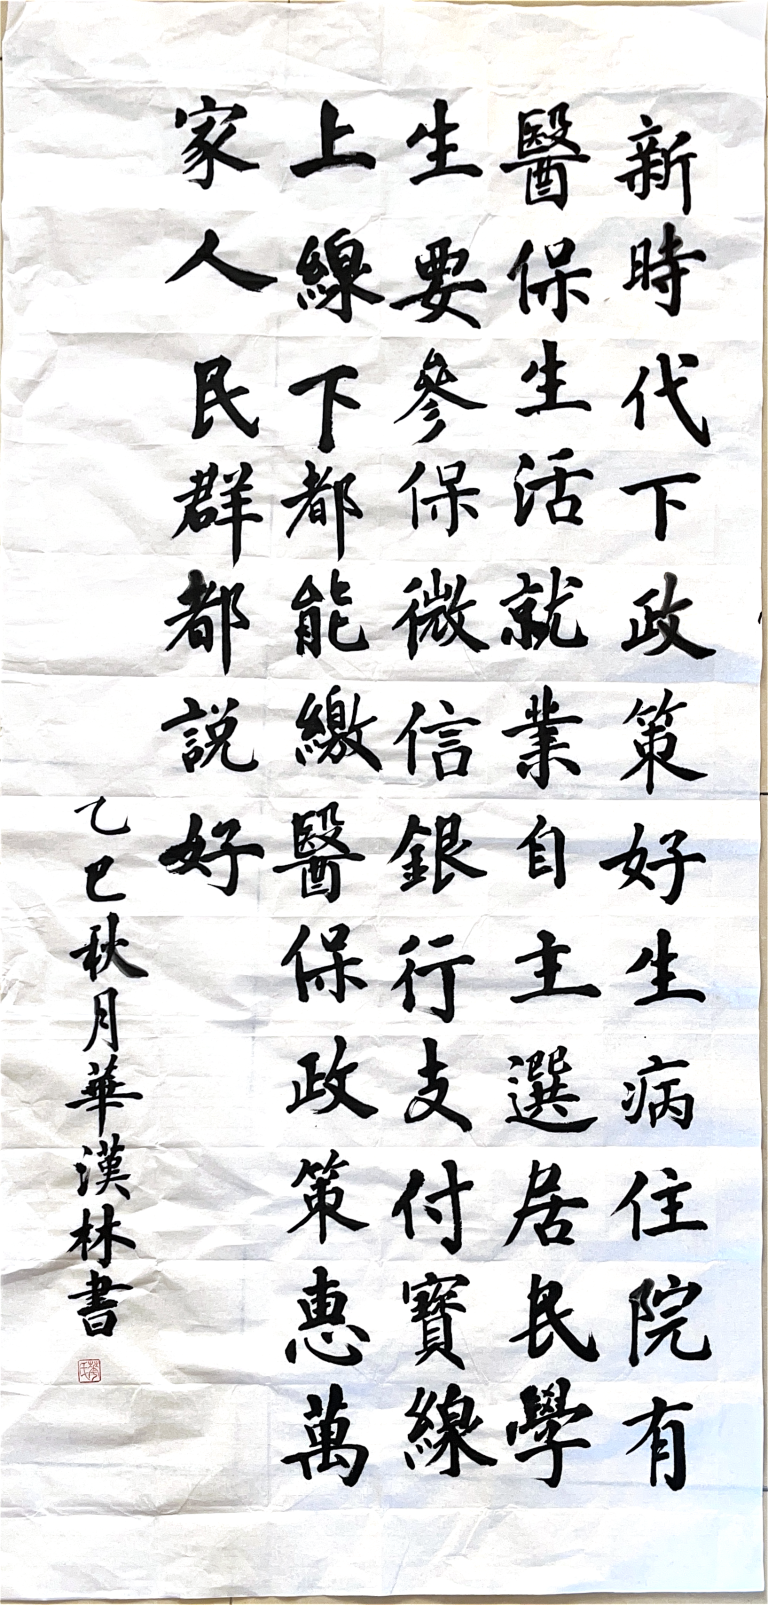 新時代下政策好生病住院有
醫保生活就業自主選居民學
生要參保微信銀行支付寶線
上線下都能繳醫保政策惠萬
家人民群都説好
乙巳秋月華漢林書